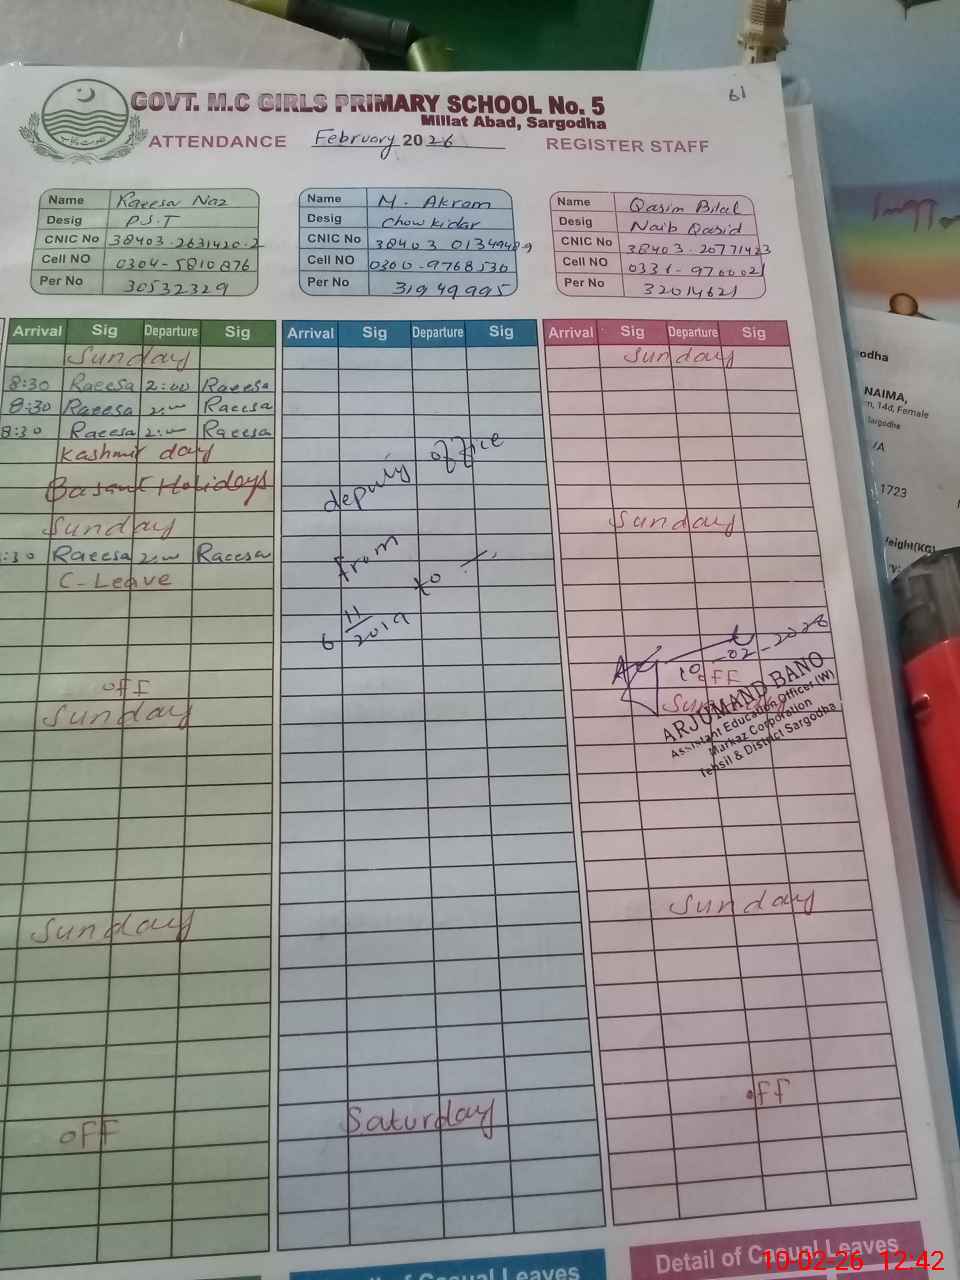 61
GOVT. M.C GIRLS PRIMARY SCHOOL No. 5
Millat Abad, Sargodha
ATTENDANCE February 2026 REGISTER STAFF
Name Raeesa Naz
Desig P.S.T
CNIC No 38403.2631420.2
Cell NO 0304-5810876
Per No 30532329
Name M. Akram
Desig Chowkidar
CNIC No 38403 0134948-9
Cell NO 0300-9768530
Per No 31949995
Name Qasim Bilal
Desig Naib Qasid
CNIC No 38403.20771423
Cell NO 0331-9700021
Per No 32014621
Arrival Sig Departure Sig Arrival Sig Departure Sig Arrival Sig Departure Sig
Sunday Sunday
8:30 Raeesa 2:00 Raeesa
8:30 Raeesa 2:00 Raeesa
8:30 Raeesa 2:00 Raeesa
Kashmir day
Basant Holidays
Sunday Sunday
:30 Raeesa 2:00 Raeesa
C-Leave
deputy office
from
6 11/2019 to
10-02-2026
off off
Sunday Sunday
ARJUMAND BANO
Assistant Education Officer (W)
Markaz Corporation
Tehsil & District Sargodha
Sunday Sunday
off Saturday off
of Casual Leaves
Detail of Casual Leaves
odha
NAIMA,
n, 14d, Female
Sargodha
/A
1723
Weight(KG)
10-02-26 12:42